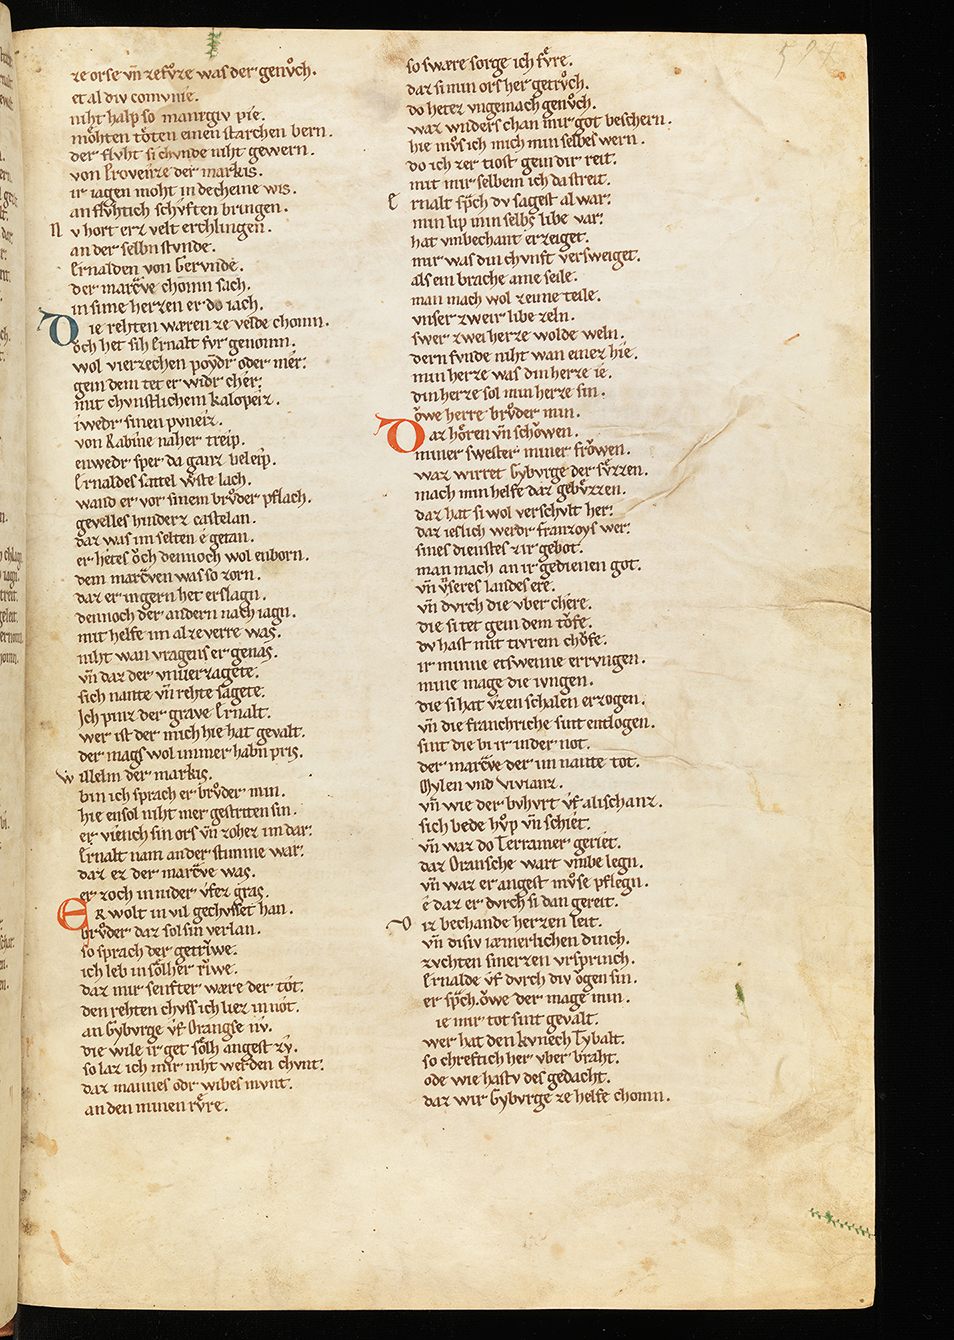 ze orse vn̄ ze fůze was der genůch.
et al div comvnie.
niht halp so manigiv pie.
mohten toͤten einen starchen bern.
der flvht si chvnde niht gewern.
von Provenze der markis.
ir iagen moht in decheine wis.
an flvhtich schvften bringen.
Nv hort erz velt erchlingen.
an der selbn stvnde.
Ernalden von Gervnde.
der marcͣve chomn sach.
in sime herzen er do iach.
Die rehten wæren ze velde chomn.
oͮch het sih Ernalt fvr genomn.
wol vierzechen poynder oder mer.
gein dem tet er widr cher.
mit chvnstlichem kalopeiz.
iwedr sinen pvneiz.
von Rabine naher treip.
enwedr sper da ganz beleip.
Ernaldes sattel wͦste lach.
wand er vor sinem brůder pflach.
gevelles hinderz castelan.
daz was im selten e getan.
er hetes oͮch dennoch wol enborn.
dem marcͣven was so zorn.
daz er in gern het erslagn.
dennoch der andern nach iagn.
mit helfe im al ze verre was.
niht wan vragens er genas.
vn̄ daz der vnverzagete.
sich nante vn̄ rehte sagete.
Ich pinz der grave Ernalt.
wer ist der mich hie hat gevalt.
der mags wol immer habn pris.
Willelm der markis.
bin ich sprach er brůder min.
hie ensol niht mer gestriten sin.
er viench sin ors vn̄ zohez im dar.
Ernalt nam an der stimme war.
daz ez der marcͣve was.
er zoch in nider vf ez gras.
ER wolt in vil gechvsset han.
brůder daz sol sin verlan.
so sprach der getriwe.
ich leb in soͤlher riwe.
daz mir senfter wære der tot.
den rehten chvss ich liez in not.
an Gybvrge vf Orangse nv.
die wile ir get soͤlh angest zv.
so laz ich mir niht werden chvnt.
daz mannes odr wibes mvnt.
an den minen rvͤre.
so swære sorge ich fvͤre.
daz si min ors her getrůch.
do hetez vngemach genůch.
waz wnders chan mir got beschern.
hie mvͦs ich mich min selbes wern.
do ich zer tiost gein dir reit.
mit mir selbem ich da streit.
Ernalt sp͛ch dv sagest al war.
min lip min selbs libe var.
hat vnbechant erzeiget.
mir was din chvnft versweiget.
als ein brache ame seile.
man mach wol zeime teile.
vnser zweir libe zeln.
swer zwei herze wolde weln.
dern fvnde niht wan einez hie.
min herze was din herze ie.
din herze sol min herze sin.
oͮwe herre brůder min.
Daz hoͤren vn̄ schoͮwen.
miner swester miner froͮwen.
waz wirret Gybvrge der svͤzzen.
mach min helfe daz gebvͤzzen.
daz hat si wol verschvlt her.
daz ieslich werdr franzoys wer.
sines dienstes z ir gebot.
man mach an ir gedienen got.
vn̄ vnseres landes ere.
vn̄ dvrch die vber chere.
die si tet gein dem toͮfe.
dv hast mit tivrem choͮfe.
ir minne etswenne errvngen.
mine mage die ivngen.
die si hat vzen schalen erzogen.
vn̄ die franchriche sint entlogen.
sint die bi ir in der not.
der marcͣve der im nante tot.
Mylen vnd Vivianz.
vn̄ wie der bvhvrt vf alischanz.
sich bede hůp vn̄ schiet.
vn̄ waz do Terramer geriet.
daz Oransche wart vmbe legn.
vn̄ waz er angest mvͦse pflegn.
e daz er dvrch si dan gereit.
Diz bechande herzen leit.
vn̄ disiv iæmerlichen dinch.
zvchten sin erzen vrsprinch.
Ernalde vf dvrch div oͮgen sin.
er sp͛ch. oͮwe der mage min.
ie mir tot sint gevalt.
wer hat den kvnech Tybalt.
so chreftich her vber braht.
ode wie hastv des gedacht.
daz wir Gybvrge ze helfe chomn.